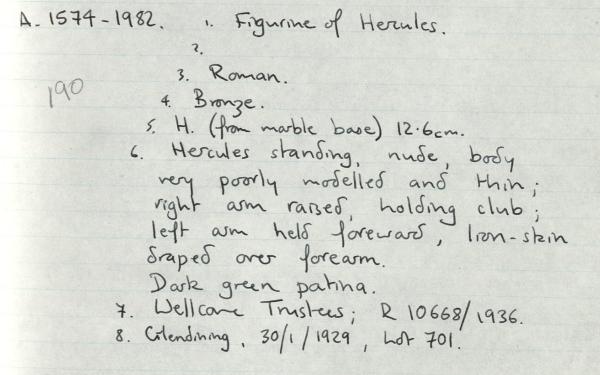 A. 1574-1982. 1. Figurine of Hercules.
2.
190
3. Roman.
4. Bronze.
5. H. (from marble base) 12.6cm.
6. Hercules standing, nude, body
very poorly modelled and thin;
right arm raised, holding club;
left arm held foreward, lion-skin
draped over forearm.
Dark green patina.
7. Wellcome Trustees; R 10668/1936.
8. Glendining, 30/1/1929, Lot 701.